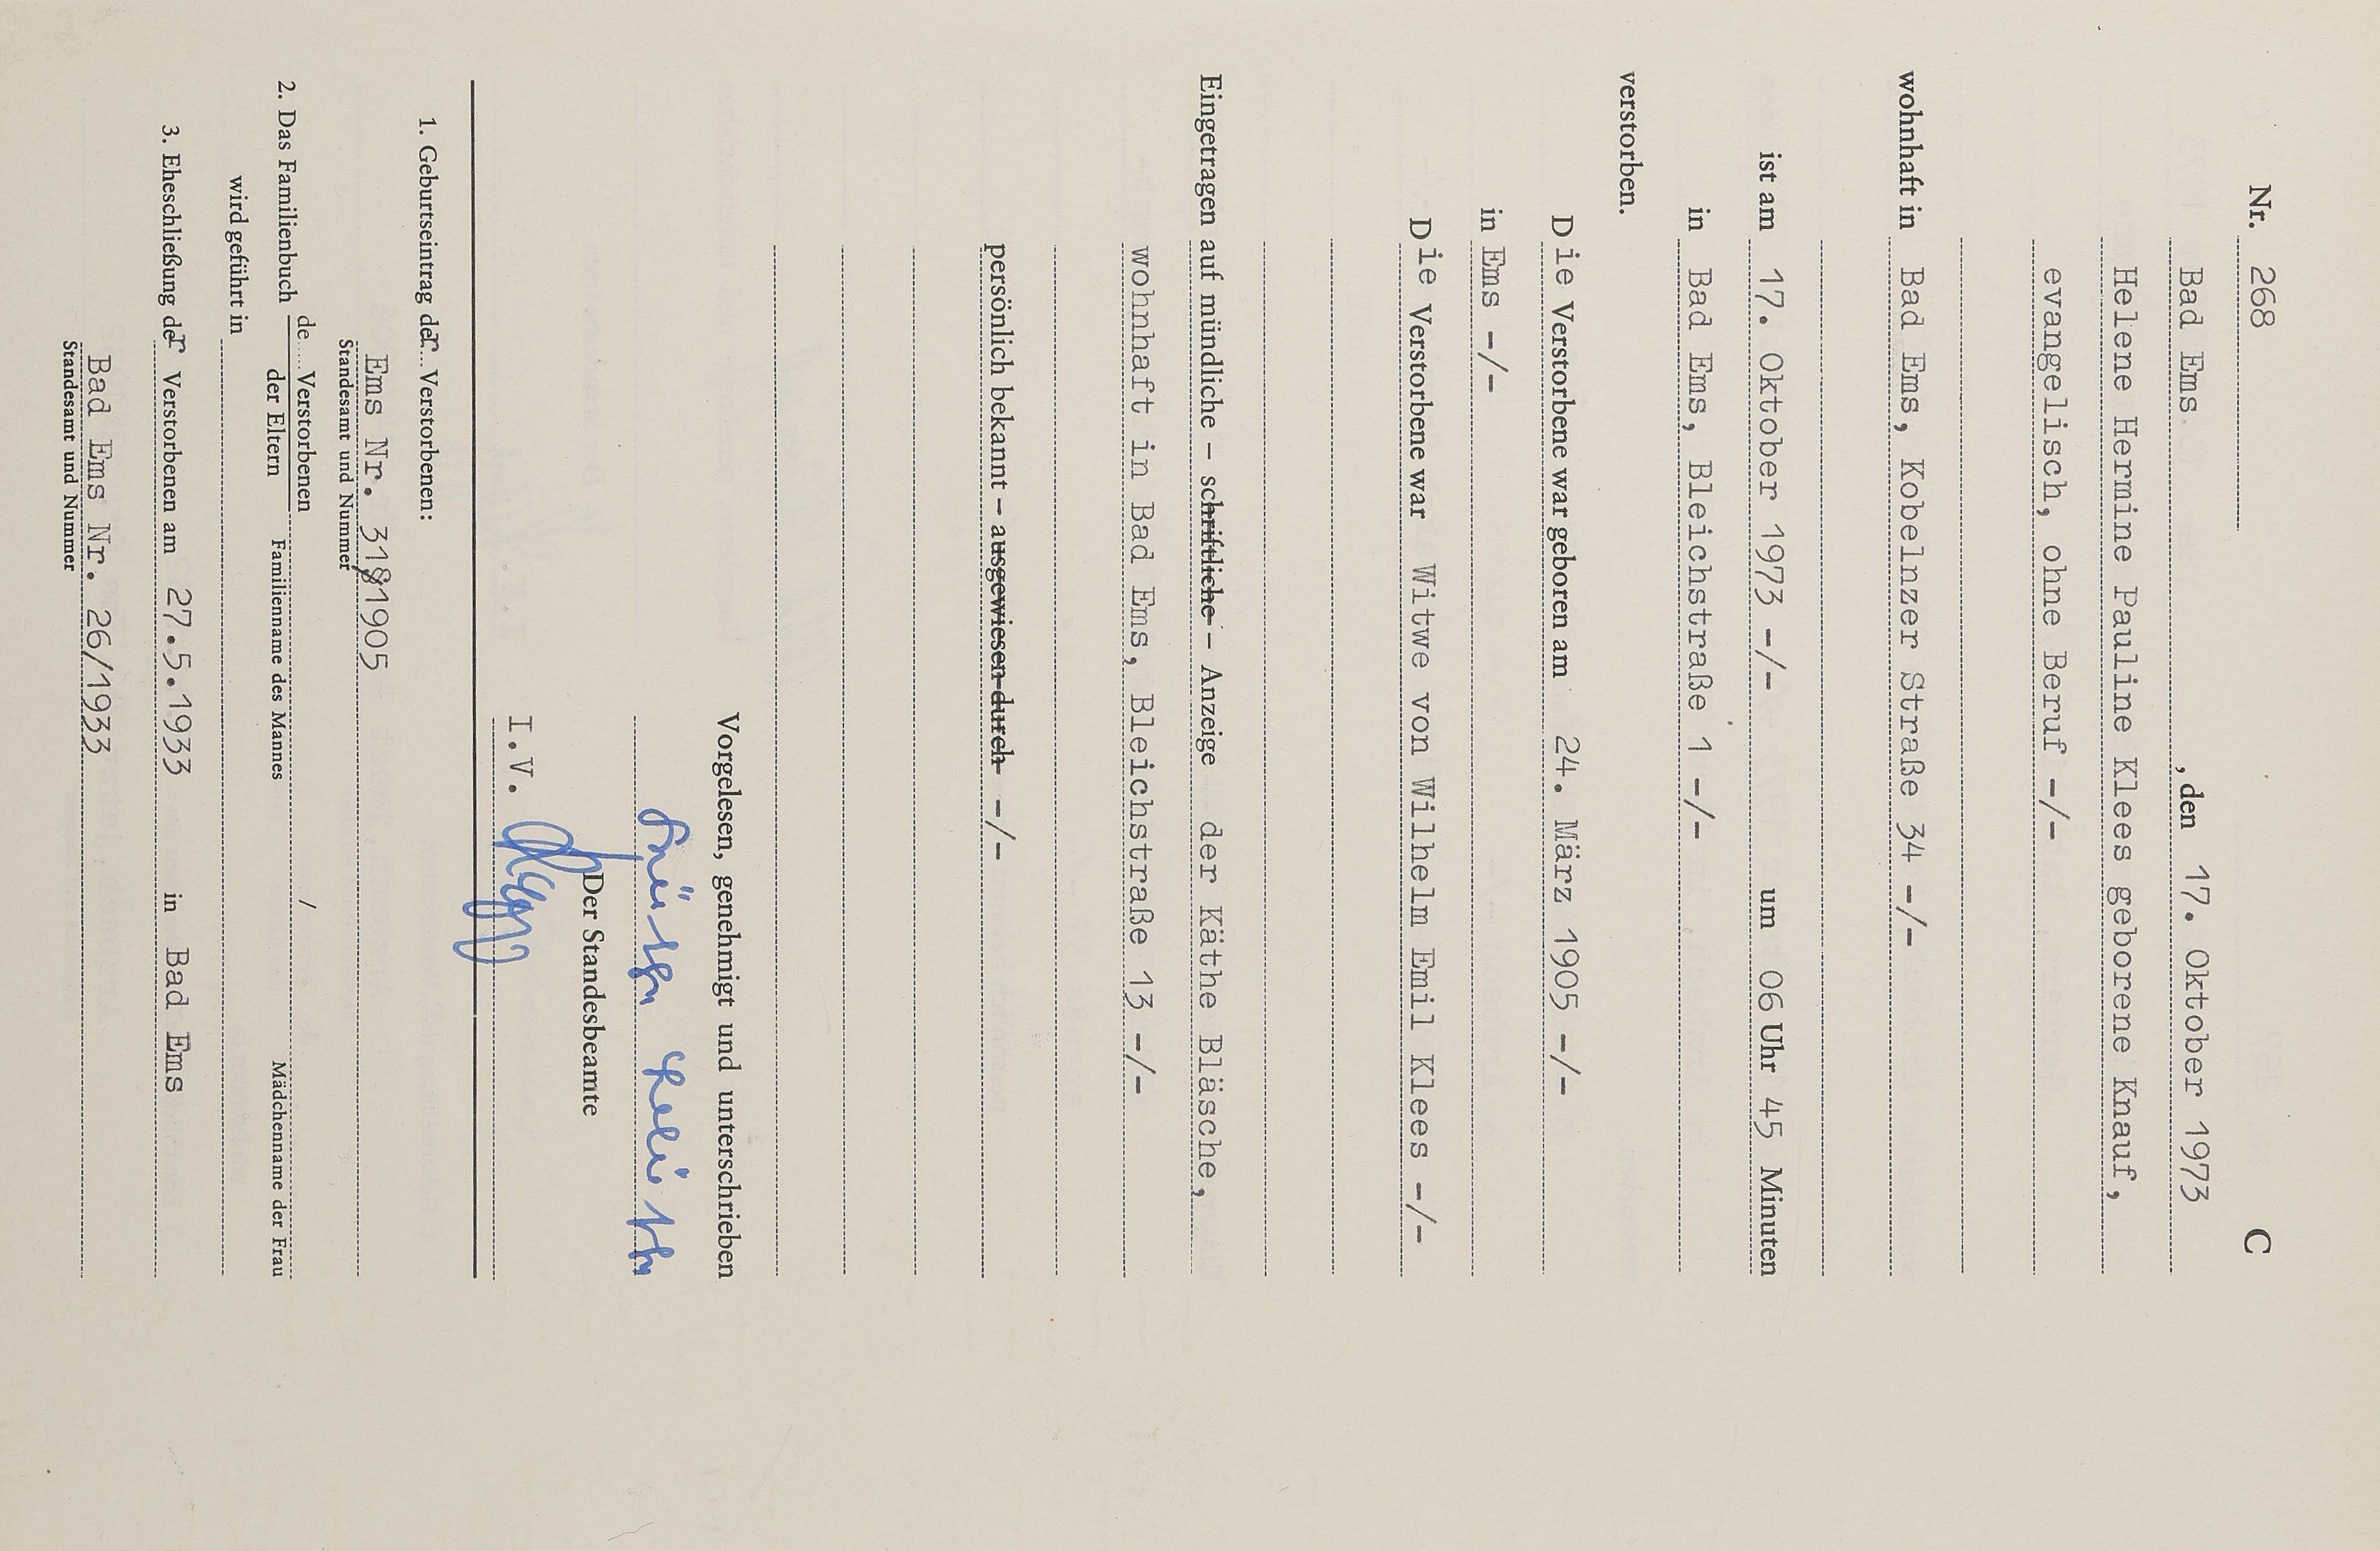 Nr. 268 C
Bad Ems, den 17. Oktober 1973
Helene Hermine Pauline Klees geborene Knauf,
evangelisch, ohne Beruf -/-
wohnhaft in Bad Ems, Kobelnzer Straße 34 -/-
ist am 17. Oktober 1973 -/- um 06 Uhr 45 Minuten
in Bad Ems, Bleichstraße 1 -/-
verstorben.
Die Verstorbene war geboren am 24. März 1905 -/-
in Ems -/-
Die Verstorbene war Witwe von Wilhelm Emil Klees -/-
Eingetragen auf mündliche – schriftliche – Anzeige der Käthe Bläsche,
wohnhaft in Bad Ems, Bleichstraße 13 -/-
persönlich bekannt – ausgewiesen durch -/-
Vorgelesen, genehmigt und unterschrieben
Der Standesbeamte
I.V.
1. Geburtseintrag der Verstorbenen:
Ems Nr.
Standesamt und Nummer
2. Das Familienbuch de.... Verstorbenen /
der Eltern Familienname des Mannes Mädchenname der Frau
wird geführt in
3. Eheschließung der Verstorbenen am 27.5.1933 in Bad Ems
Bad Ems Nr. 26/1933
Standesamt und Nummer